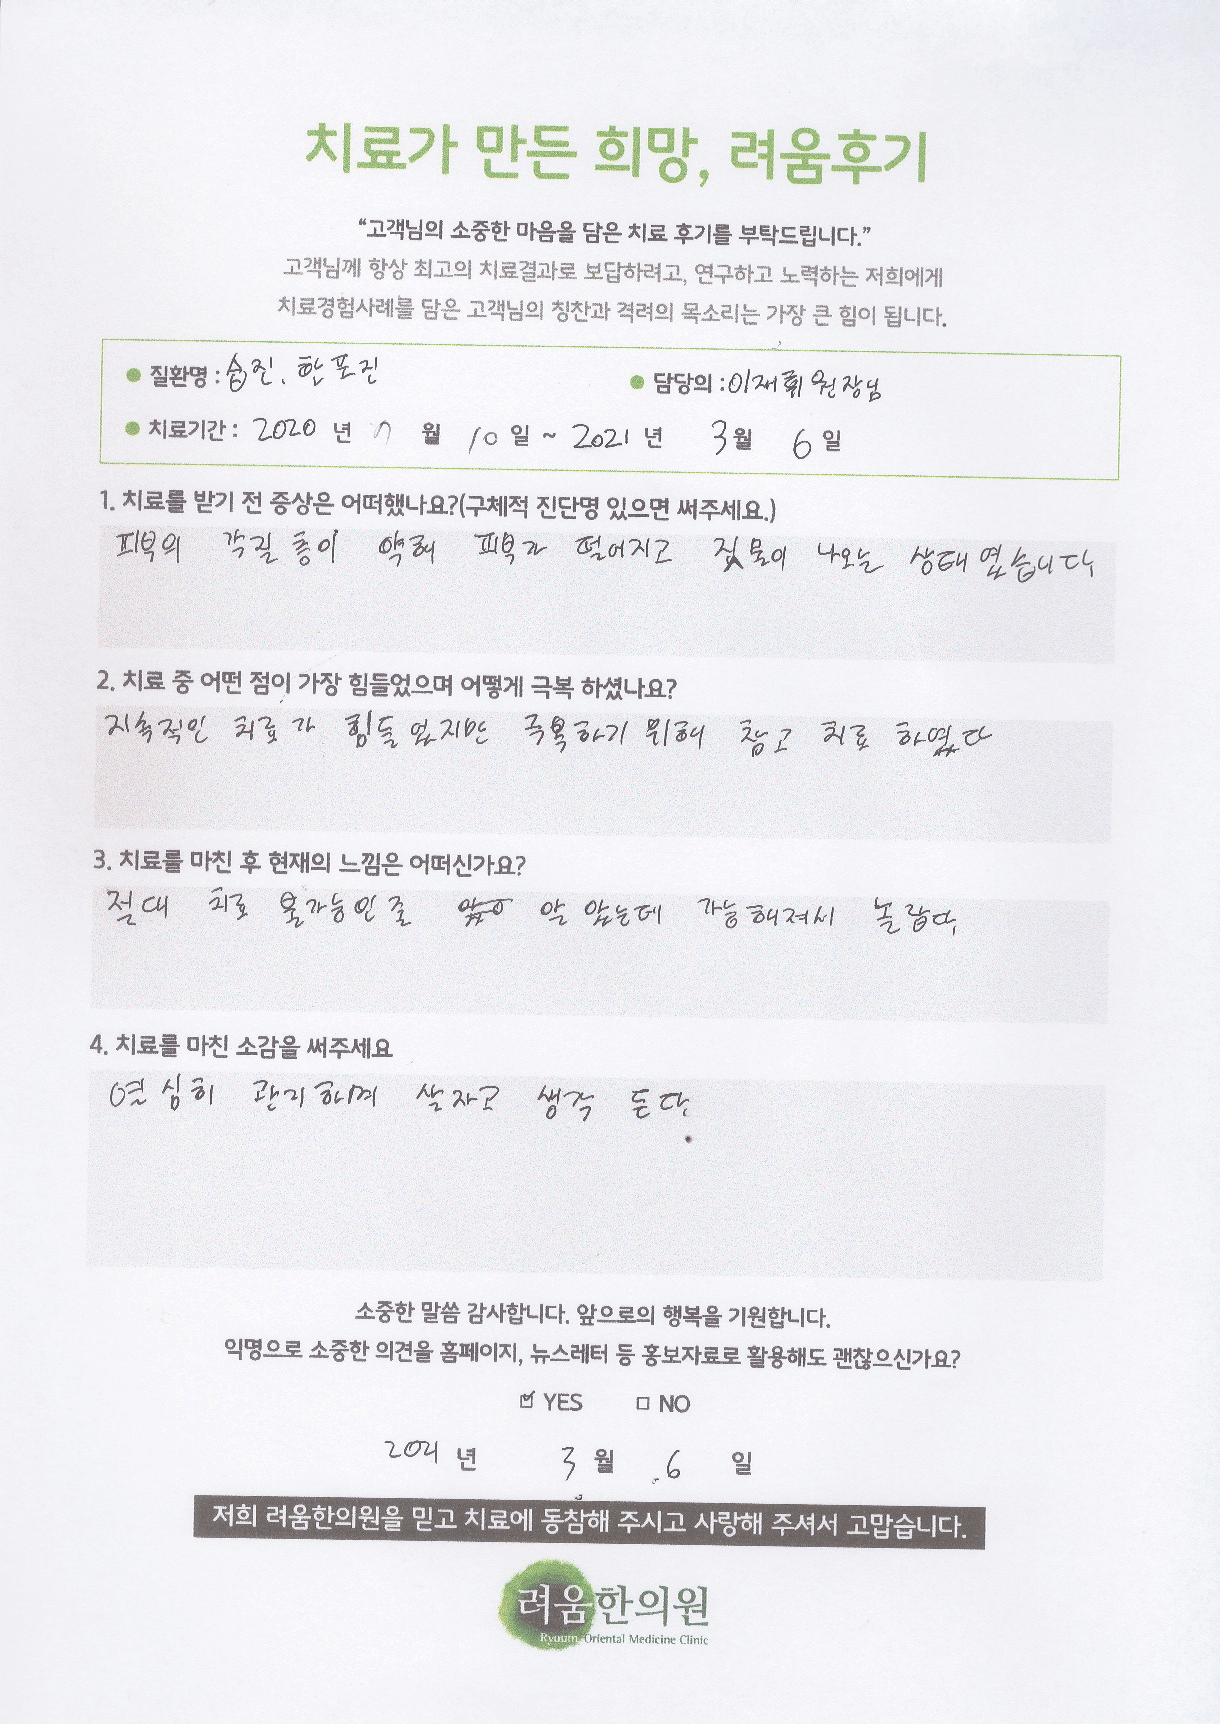 치료가 만든 희망, 려움후기
“고객님의 소중한 마음을 담은 치료 후기를 부탁드립니다.”
고객님께 항상 최고의 치료결과로 보답하려고, 연구하고 노력하는 저희에게
치료경험사례를 담은 고객님의 칭찬과 격려의 목소리는 가장 큰 힘이 됩니다.
● 질환명 : 습진, 한포진 ● 담당의 : 이재휘 원장님
● 치료기간 : 2020 년 7 월 10 일 ~ 2021 년 3 월 6 일
1. 치료를 받기 전 증상은 어떠했나요?(구체적 진단명 있으면 써주세요.)
피부의 각질층이 약해 피부가 떨어지고 짓물이 나오는 상태였습니다.
2. 치료 중 어떤 점이 가장 힘들었으며 어떻게 극복 하셨나요?
지속적인 치료가 힘들었지만 극복하기 위해 참고 치료 하였다
3. 치료를 마친 후 현재의 느낌은 어떠신가요?
절대 치료 불가능인줄 알 았는데 가능해져서 놀랍다.
4. 치료를 마친 소감을 써주세요
열심히 관리하며 살자고 생각 든다.
소중한 말씀 감사합니다. 앞으로의 행복을 기원합니다.
익명으로 소중한 의견을 홈페이지, 뉴스레터 등 홍보자료로 활용해도 괜찮으신가요?
☑ YES □ NO
2021 년 3 월 6 일
저희 려움한의원을 믿고 치료에 동참해 주시고 사랑해 주셔서 고맙습니다.
려움한의원
Ryoum Oriental Medicine Clinic